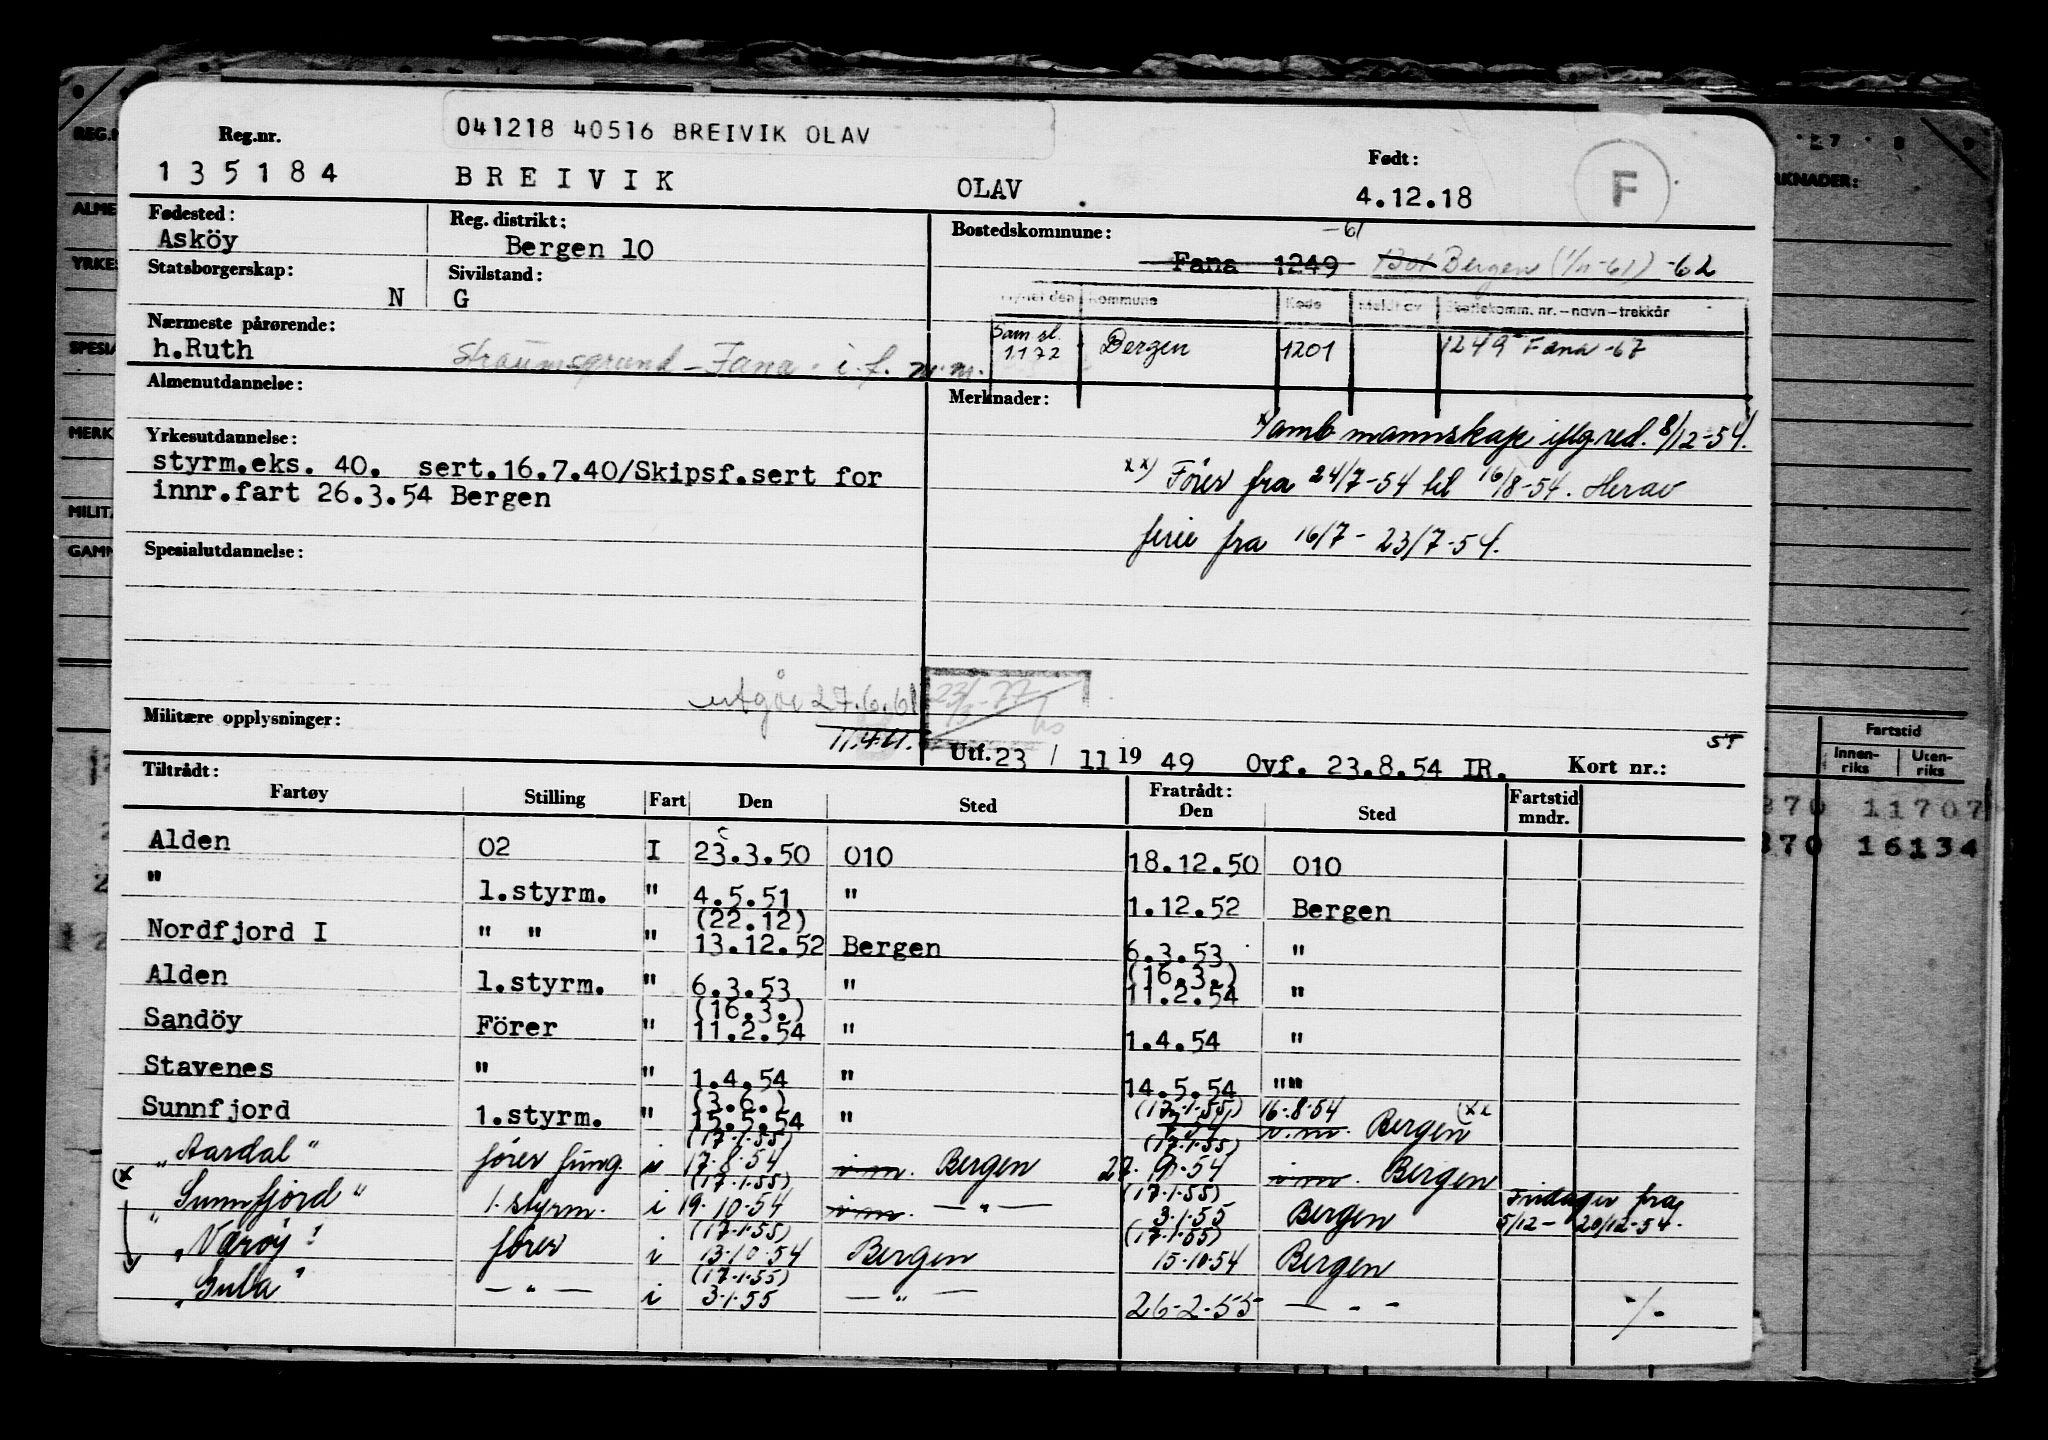 041218 40516 BREIVIK OLAV
Reg.nr.
135184 BREIVIK OLAV
Født:
4.12.18
F
Fødested:
Asköy
Reg. distrikt:
Bergen 10
Bostedskommune:
-61
Fana 1249 1301 Bergen (1/11-61) -62
Statsborgerskap:
N
Sivilstand:
G
Kommune Kode Meldt av Skattekomm. nr. – navn – trekkår
Sam sl.
1172 Bergen 1201 1249 Fana -67
Nærmeste pårørende:
h.Ruth
Straumsgrund - Fana. i. f. m.m.
Almenutdannelse:
Merknader:
x) amb mannskap iflg red. 8/12-54.
Yrkesutdannelse:
styrm.eks. 40. sert.16.7.40/Skipsf.sert for
innr.fart 26.3.54 Bergen
xx) Förer fra 24/7-54 til 16/8-54. Herav
ferie fra 16/7 - 23/7-54.
Spesialutdannelse:
Militære opplysninger:
utgår 27.6.61
11.4.61.
Utf. 23 / 11 19 49 Ovf. 23.8.54 IR. Kort nr.:
ST
Tiltrådt: Fratrådt:
Fartøy Stilling Fart Den Sted Den Sted Fartstid mndr.
Alden 02 I 23.3.50 010 18.12.50 010
" 1.styrm. " 4.5.51 " 1.12.52 Bergen
(22.12)
Nordfjord I " " " 13.12.52 Bergen 6.3.53 "
(16.3.)
Alden 1.styrm. " 6.3.53 " 11.2.54 "
(16.3.)
Sandöy Förer " 11.2.54 " 1.4.54 "
Stavenes " " 1.4.54 " 14.5.54 ""
(3.6.) (17.1.55) 16.8.54
Sunnfjord 1.styrm. " 15.5.54 " v.m. Bergen (xx
(17.1.55) (17.1.55)
"Aardal" fører fung. i 17.8.54 i.m. Bergen 27.9.54 i.m. Bergen
(x (17.1.55) (17.1.55)
"Sunnfjord" 1. styrm. i 19.10.54 i.m. —"— 3.1.55 Bergen Fridager fra 5/12 - 20/12-54.
(17.1.55) (17.1.55)
"Værøy" fører i 13.10.54 Bergen 15.10.54 Bergen
(17.1.55)
"Gula" —"— i 3.1.55 —"— 26-2-55 —"— -/-
REG.N
ALME
YRKE
SPESIA
MERK
MILITÆ
GAMM
RKNADER:
Fartstid
Innenriks Utenriks
370 11707
370 16134